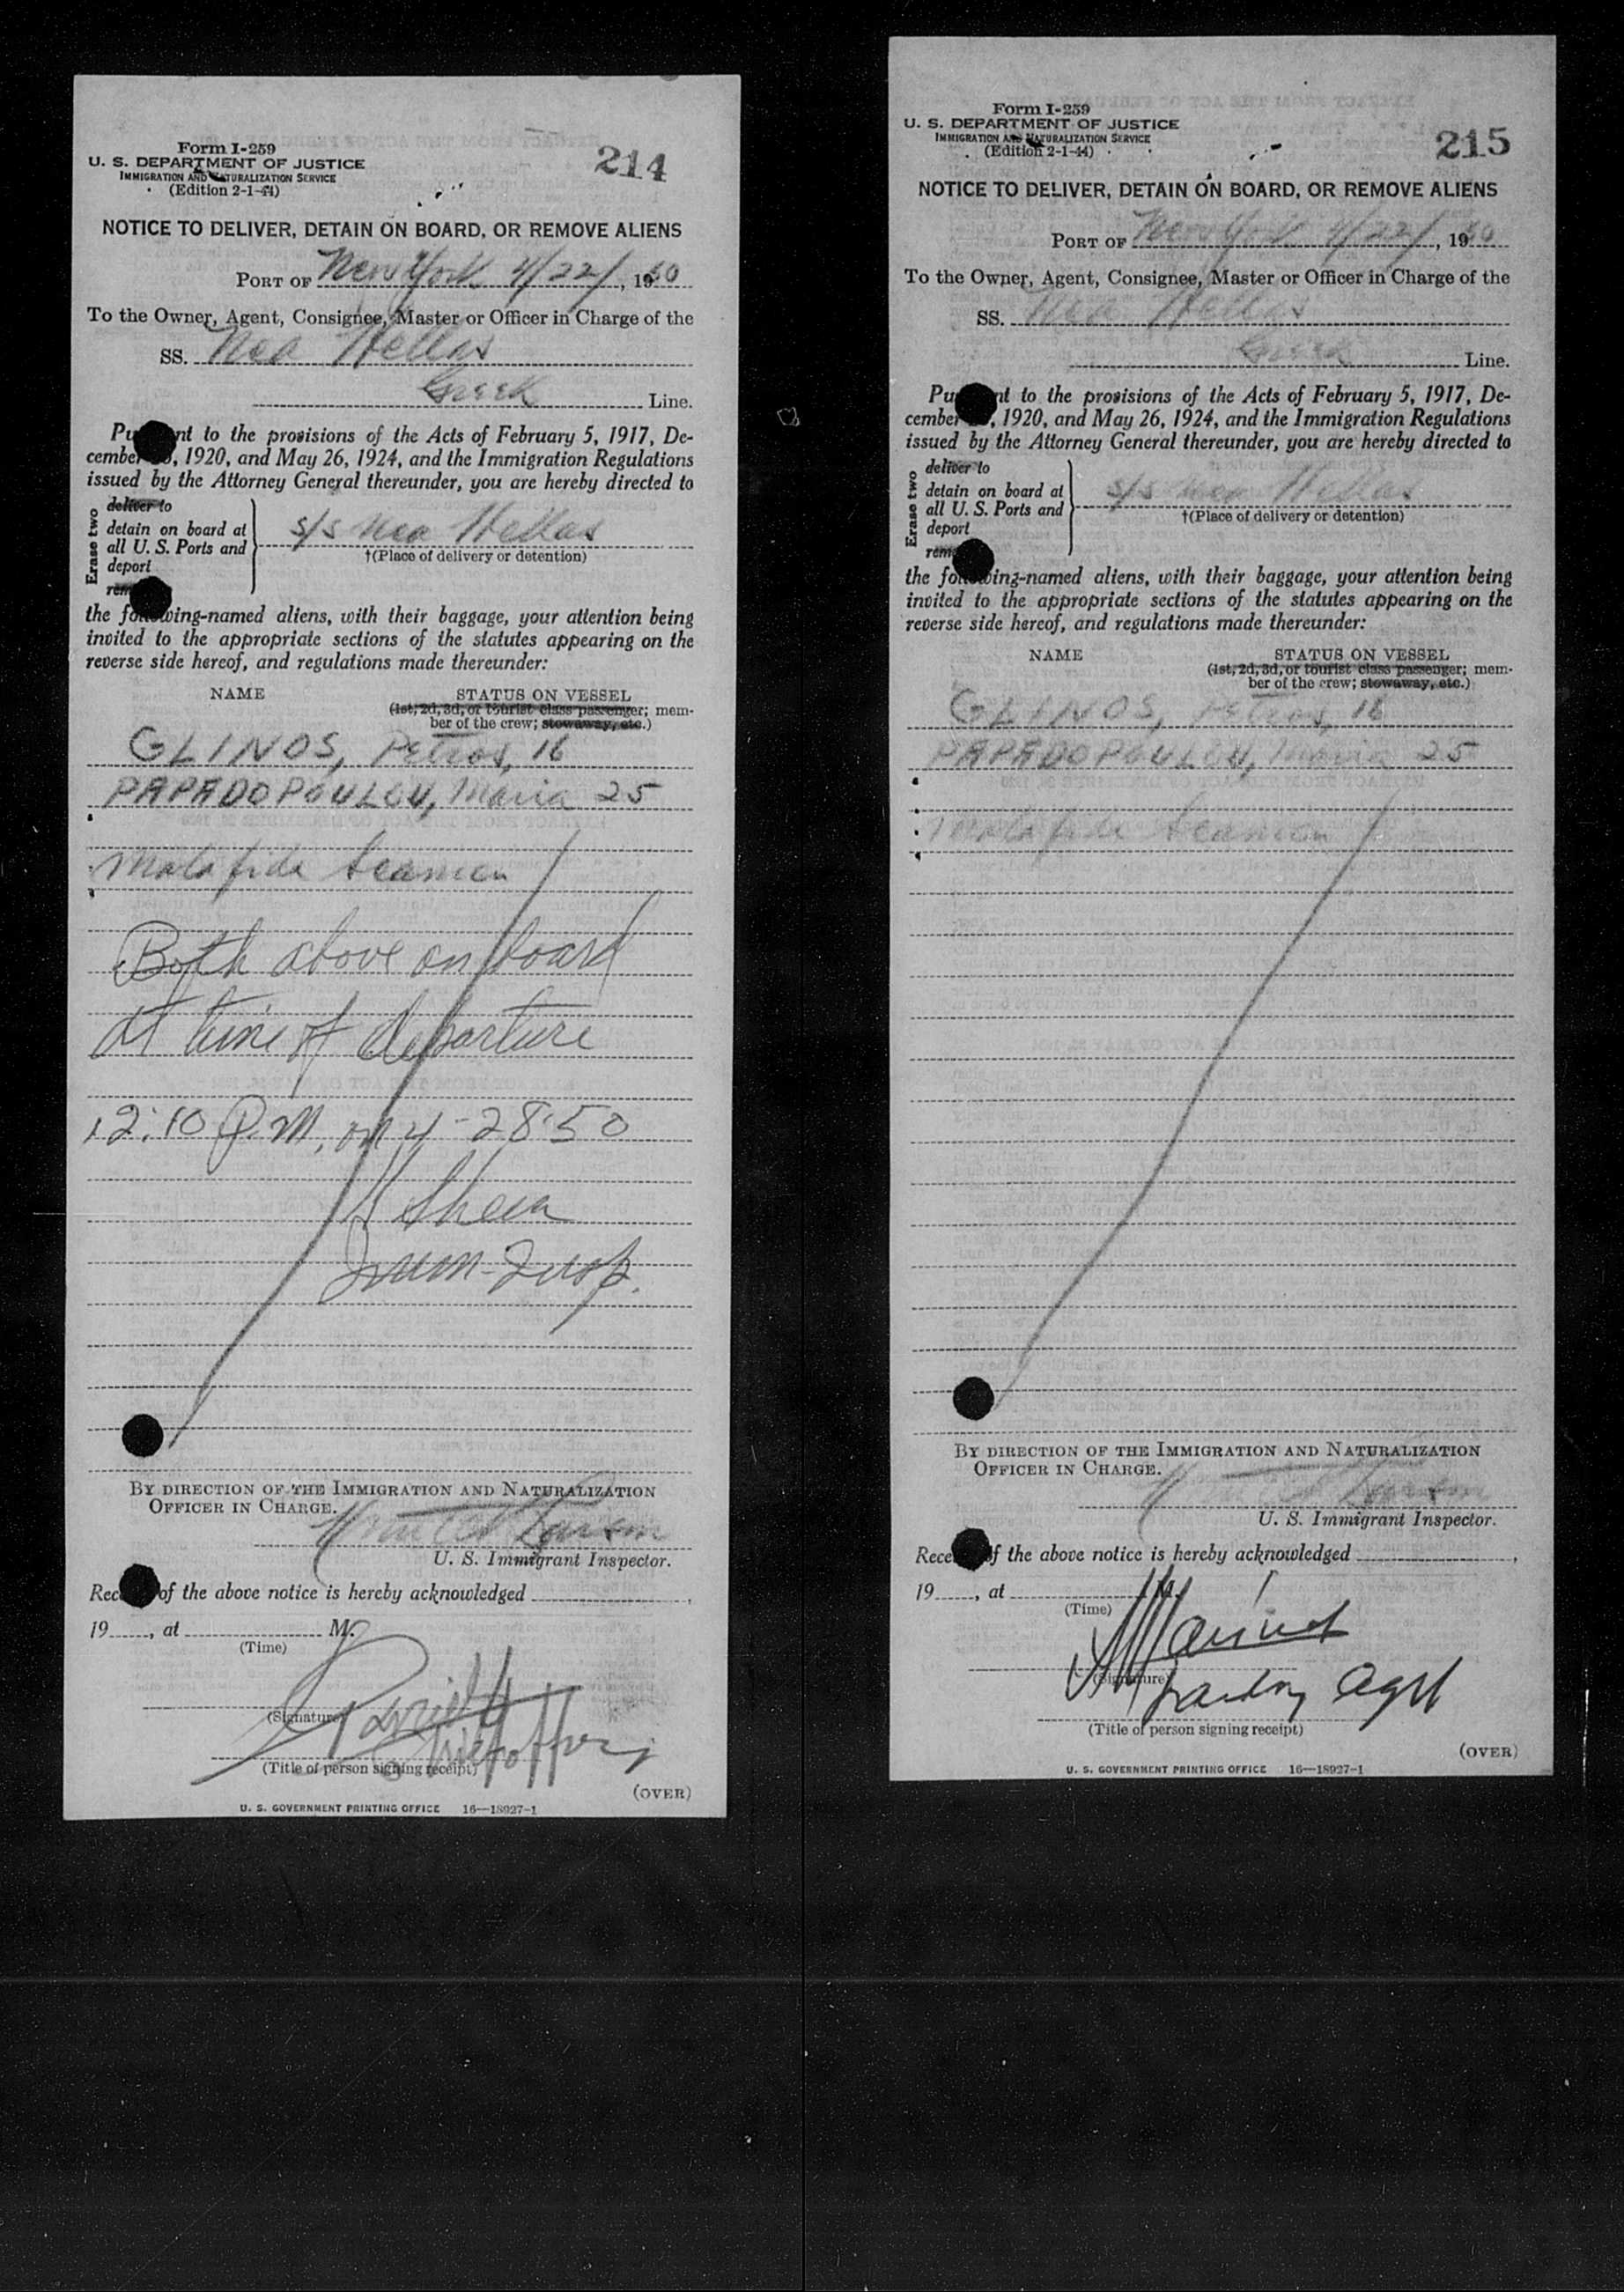 Form I-259
U. S. DEPARTMENT OF JUSTICE
IMMIGRATION AND NATURALIZATION SERVICE
(Edition 2-1-44)
214
NOTICE TO DELIVER, DETAIN ON BOARD, OR REMOVE ALIENS
PORT OF New York 4/22/, 1950
To the Owner, Agent, Consignee, Master or Officer in Charge of the
SS. Nea Hellas
Greek Line.
Pu nt to the provisions of the Acts of February 5, 1917, De-
cember , 1920, and May 26, 1924, and the Immigration Regulations
issued by the Attorney General thereunder, you are hereby directed to
Erase two
deliver to
detain on board at
all U. S. Ports and
deport
rem
s/s Nea Hellas
†(Place of delivery or detention)
the following-named aliens, with their baggage, your attention being
invited to the appropriate sections of the statutes appearing on the
reverse side hereof, and regulations made thereunder:
NAME STATUS ON VESSEL
(1st, 2d, 3d, or tourist class passenger; mem-
ber of the crew; stowaway, etc.)
GLINOS, Petros, 16
PAPADOPOULOU, Maria 25
Mala fide Seamen
Both above on board
at time of departure
12:10 P.M. on 4-28-50
Shea
Imm-Insp.
BY DIRECTION OF THE IMMIGRATION AND NATURALIZATION
OFFICER IN CHARGE.
U. S. Immigrant Inspector.
Rec of the above notice is hereby acknowledged ,
19 , at M.
(Time)
(Signature)
(Title of person signing receipt)
(OVER)
U. S. GOVERNMENT PRINTING OFFICE 16—18927-1
Form I-259
U. S. DEPARTMENT OF JUSTICE
IMMIGRATION AND NATURALIZATION SERVICE
(Edition 2-1-44)
215
NOTICE TO DELIVER, DETAIN ON BOARD, OR REMOVE ALIENS
PORT OF New York 4/22/, 1950
To the Owner, Agent, Consignee, Master or Officer in Charge of the
SS. Nea Hellas
Greek Line.
Pu nt to the provisions of the Acts of February 5, 1917, De-
cember , 1920, and May 26, 1924, and the Immigration Regulations
issued by the Attorney General thereunder, you are hereby directed to
Erase two
deliver to
detain on board at
all U. S. Ports and
deport
rem
s/s Nea Hellas
†(Place of delivery or detention)
the following-named aliens, with their baggage, your attention being
invited to the appropriate sections of the statutes appearing on the
reverse side hereof, and regulations made thereunder:
NAME STATUS ON VESSEL
(1st, 2d, 3d, or tourist class passenger; mem-
ber of the crew; stowaway, etc.)
GLINOS, Petros, 16
PAPADOPOULOU, Maria 25
Mala fide Seamen
BY DIRECTION OF THE IMMIGRATION AND NATURALIZATION
OFFICER IN CHARGE.
U. S. Immigrant Inspector.
Rece of the above notice is hereby acknowledged ,
19 , at M.
(Time)
(Signature)
Agt
(Title of person signing receipt)
(OVER)
U. S. GOVERNMENT PRINTING OFFICE 16—18927-1